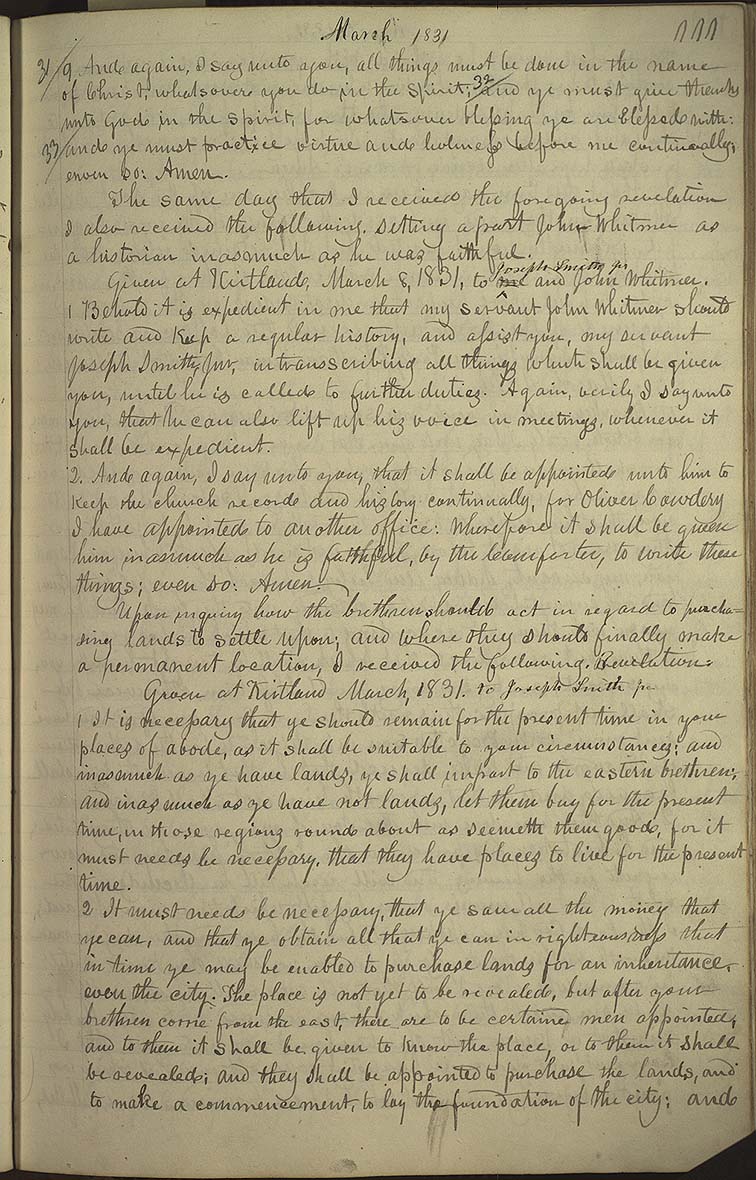 March 1831
111
31/ 9 And again, I say unto you, all things must be done in the name
of Christ, whatsoever you do in the Spirit; 32/ and ye must give thanks
unto God in the Spirit, for whatsoever blessing ye are blessed with:
33/ and ye must practice virtue and holiness before me continually;
even so: Amen.
The same day that I received the foregoing revelation
I also received the following, setting apart John Whitmer as
a historian inasmuch as he was faithful.
Joseph Smith jr
Given at Kirtland, March 8, 1831, to me and John Whitmer.
1 Behold it is expedient in me that my servant John Whitmer should
write and Keep a regular history, and assist you, my servant
Joseph Smith, Jur, in transcribing all things which shall be given
you, until he is called to further duties. Again, verily I say unto
you, that he can also lift up his voice in meetings, whenever it
shall be expedient.
2. And again, I say unto you, that it shall be appointed unto him to
Keep the church records and history continually, for Oliver Cowdery
I have appointed to another office: Wherefore it shall be given
him inasmuch as he is faithful, by the Comforter, to write these
things; even so: Amen.
Upon inquiry how the brethren should act in regard to purcha=
sing lands to settle upon; and where they should finally make
a permanent location, I received the following. Revelation:
Given at Kirtland March, 1831. to Joseph Smith jr
1 It is necessary that ye should remain for the present time in your
places of abode, as it shall be suitable to your circumstances; and
inasmuch as ye have lands, ye shall impart to the eastern brethren;
and inasmuch as ye have not lands, let them buy for the present
time, in those regions round about as seemeth them good, for it
must needs be necessary, that they have places to live for the present
time.
2 It must needs be necessary, that ye save all the money that
ye can, and that ye obtain all that ye can in righteousness that
in time ye may be enabled to purchase lands for an inheritance,
even the city. The place is not yet to be revealed, but after your
brethren come from the east, there are to be certain men appointed,
and to them it shall be given to know the place, or to them it shall
be revealed; and they shall be appointed to purchase the lands, and
to make a commencement, to lay the foundation of the city; and